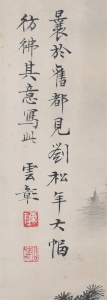 曩於舊都見劉松年大幅
彷彿其意寫此　雲章